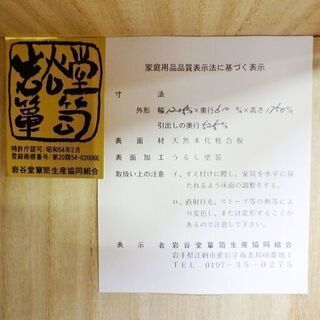 岩谷堂箪笥
特許庁認可/昭和54年2月
登録商標番号/第20類54-020066
岩谷堂箪笥生産協同組合
家庭用品品質表示法に基づく表示
寸　法
外形　幅1205%×奥行510%×高さ1760%
引出しの奥行
表面材　天然木化粧合板
表面加工　うるし塗装
取扱い上の注意　イ、すえ付けに際し、家具を水平に保
たれるよう床面の調整をする。
ロ、直射日光、ストーブ等の熱等によ
り変色し、または変形することが
あるので注意して下さい。
表示者　岩谷堂箪笥生産協同組合
岩手県江刺市愛宕字海老島
TEL　0197-35-0275